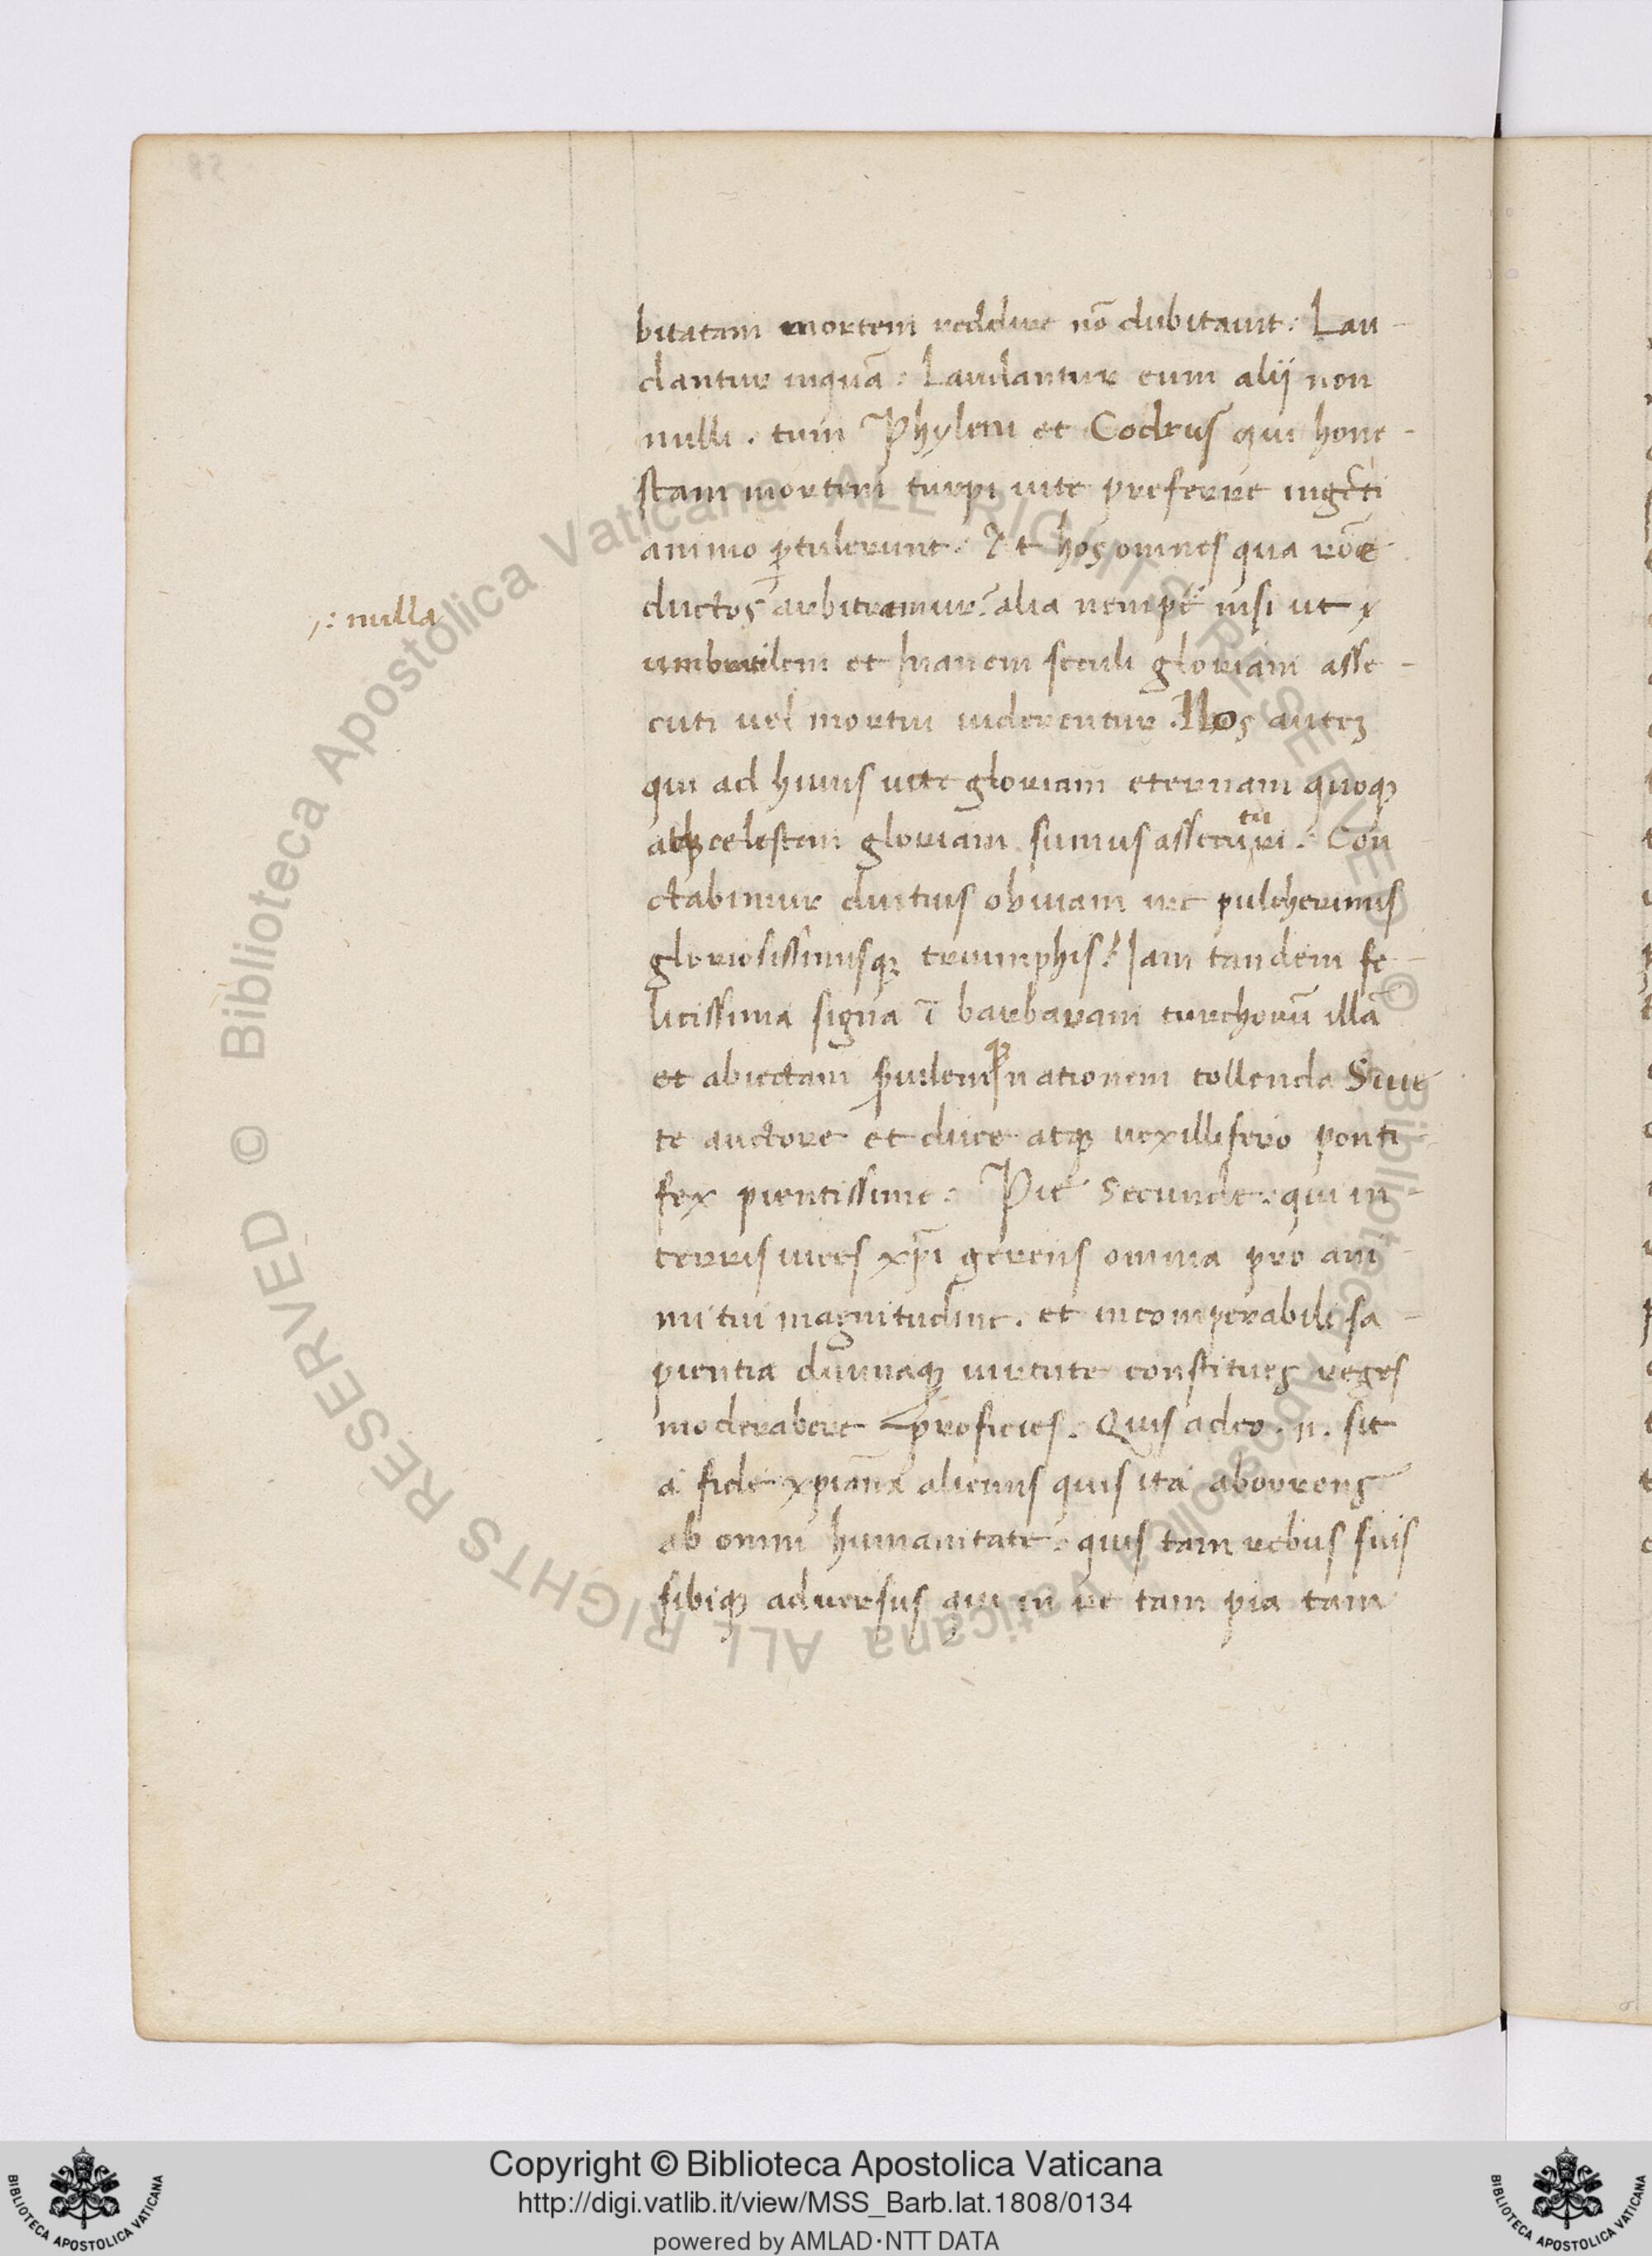 bitatam mortem reddire nō dubitauit: Lau-
dantur inquā: Laudantur cum alij non
nulli. tum Phyleni et Codrus qui hone-
stam mortem turpi uite preferre ingēti
animo ꝑtulerunt. Et hos omnes qua rōe
ductos arbitramur? alia nempe nisi ut
:nulla
umbratilem et inanem seculi gloriam asse-
cuti uel mortui uiderentur. Nos auteꝫ
qui ad huius uite gloriam eternam quoqꝫ
atqꝫ celestem gloriam sumus assecuturi. Con
tu
ctabimur diutius obuiam ire pulcherimis
gloriosissimisqꝫ triumphis? Iam tandem fe-
licissima signa ī barbaram turchorū illā
et abiectam seruilemqꝫ nationem tollenda sunt
te auctore et duce atqꝫ uexillifero ponti-
fex pientissime: Pie Secunde: qui in-
terris uices xpi gerens omnia pro ani-
mi tui magnitudine. et incomperabili sa-
pientia diuinaqꝫ uirtute constitues reges
moderabere proficies. Quis adeo .n. sit
a fide xpiana alienus quis ita aborrens
ab omni humanitate: quis tam rebus suis
sibiqꝫ aduersus qui in re tam pia tam
Copyright © Biblioteca Apostolica Vaticana
http://digi.vatlib.it/view/MSS_Barb.lat.1808/0134
powered by AMLAD·NTT DATA
BIBLIOTECA APOSTOLICA VATICANA
BIBLIOTECA APOSTOLICA VATICANA
© Biblioteca Apostolica Vaticana ALL RIGHTS RESERVED © Biblioteca Apostolica Vaticana ALL RIGHTS RESERVED